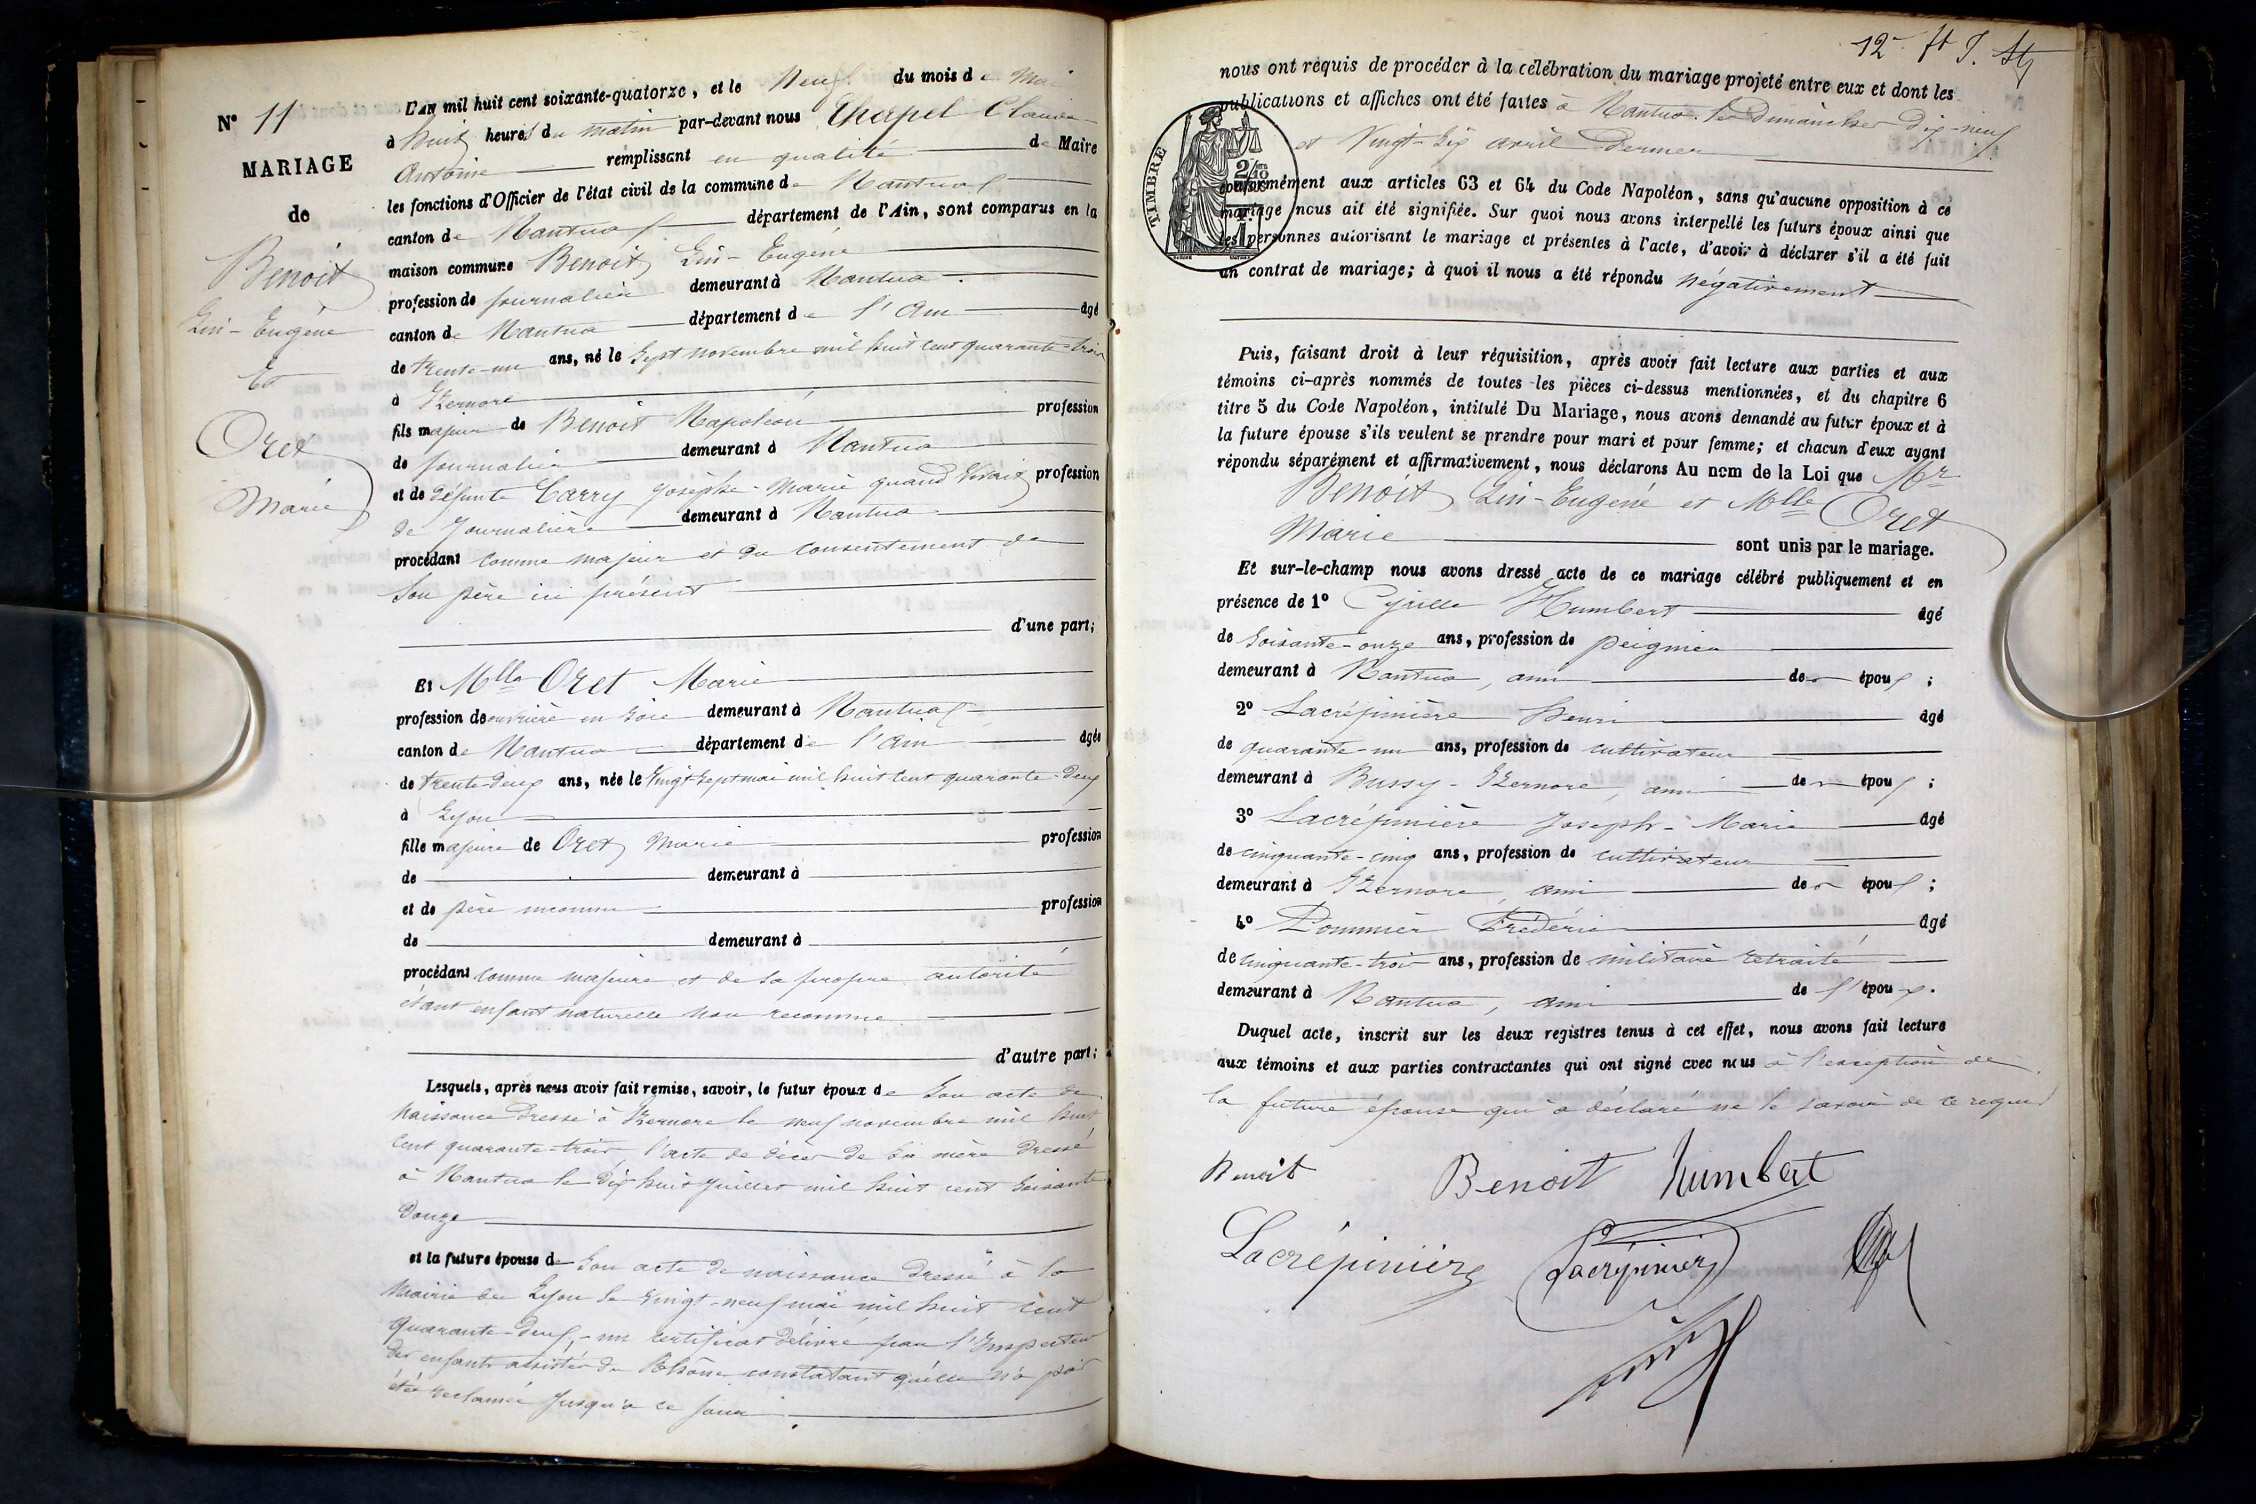 N° 11
MARIAGE
de
Benoit
Lin-Eugène
Et
Oret
Marie
L'AN mil huit cent soixante-quatorze, et le Neuf du mois de Mai
à huit heures du matin par-devant nous Chapel Claude
Antoine remplissant en qualité de Maire
les fonctions d'Officier de l'état civil de la commune de Nantua
canton de Nantua département de l'Ain, sont comparus en la
maison commune Benoit Lin-Eugène
profession de journalier demeurant à Nantua
canton de Nantua département de l'Ain âgé
de trente-un ans, né le Sept novembre mil huit cent quarante-trois
à Izernore
fils majeur de Benoit Napoléon profession
de journalier demeurant à Nantua
et de défunte Carry Josèphe-Marie quand vivait profession
de Journalière demeurant à Nantua
procédant comme majeur et du consentement de
son père ici présent
d'une part;
Et Mlle Oret Marie
profession de ouvrière en soie demeurant à Nantua
canton de Nantua département de l'Ain âgée
de trente-deux ans, née le Vingt sept mai mil huit cent quarante-deux
à Lyon
fille majeure de Oret Marie profession
de demeurant à
et de père inconnu profession
de demeurant à
procédant comme majeure et de sa propre autorité
étant enfant naturelle non reconnue
d'autre part;
Lesquels, après nous avoir fait remise, savoir, le futur époux de Son acte de
naissance dressé à Izernore le neuf novembre mil huit
cent quarante-trois, l'acte de décès de sa mère dressé
à Nantua le dix huit juillet mil huit cent soixante
douze
et la future épouse de Son acte de naissance dressé à la
Mairie de Lyon le vingt-neuf mai mil huit cent
quarante-deux, - un certificat délivré par l'Inspecteur
des enfants assistés du Rhône constatant qu'elle n'a pas
été réclamée jusqu'à ce jour
12
nous ont requis de procéder à la célébration du mariage projeté entre eux et dont les
publications et affiches ont été faites à Nantua les dimanches dix-neuf
et Vingt-six avril dernier
TIMBRE
conformément aux articles 63 et 64 du Code Napoléon, sans qu'aucune opposition à ce
mariage nous ait été signifiée. Sur quoi nous avons interpellé les futurs époux ainsi que
les personnes autorisant le mariage et présentes à l'acte, d'avoir à déclarer s'il a été fait
un contrat de mariage; à quoi il nous a été répondu négativement
Puis, faisant droit à leur réquisition, après avoir fait lecture aux parties et aux
témoins ci-après nommés de toutes les pièces ci-dessus mentionnées, et du chapitre 6
titre 5 du Code Napoléon, intitulé Du Mariage, nous avons demandé au futur époux et à
la future épouse s'ils veulent se prendre pour mari et pour femme; et chacun d'eux ayant
répondu séparément et affirmativement, nous déclarons Au nom de la Loi que Mr
Benoit Lin-Eugène et Mlle Oret
Marie sont unis par le mariage.
Et sur-le-champ nous avons dressé acte de ce mariage célébré publiquement et en
présence de 1° Cyrille Humbert âgé
de soixante-onze ans, profession de peignier
demeurant à Nantua, ami des époux;
2° Lacrépinière Henri âgé
de quarante-un ans, profession de cultivateur
demeurant à Bussy-Izernore, ami des époux;
3° Lacrépinière Joseph-Marie âgé
de cinquante-cinq ans, profession de cultivateur
demeurant à Izernore, ami des époux;
4° Pommier Frédéric âgé
de cinquante-trois ans, profession de militaire retraité
demeurant à Nantua, ami de l'époux.
Duquel acte, inscrit sur les deux registres tenus à cet effet, nous avons fait lecture
aux témoins et aux parties contractantes qui ont signé avec nous à l'exception de
la future épouse qui a déclaré ne le savoir de ce requis
Benoit Benoit Humbert
Lacrépinière Lacrépinière